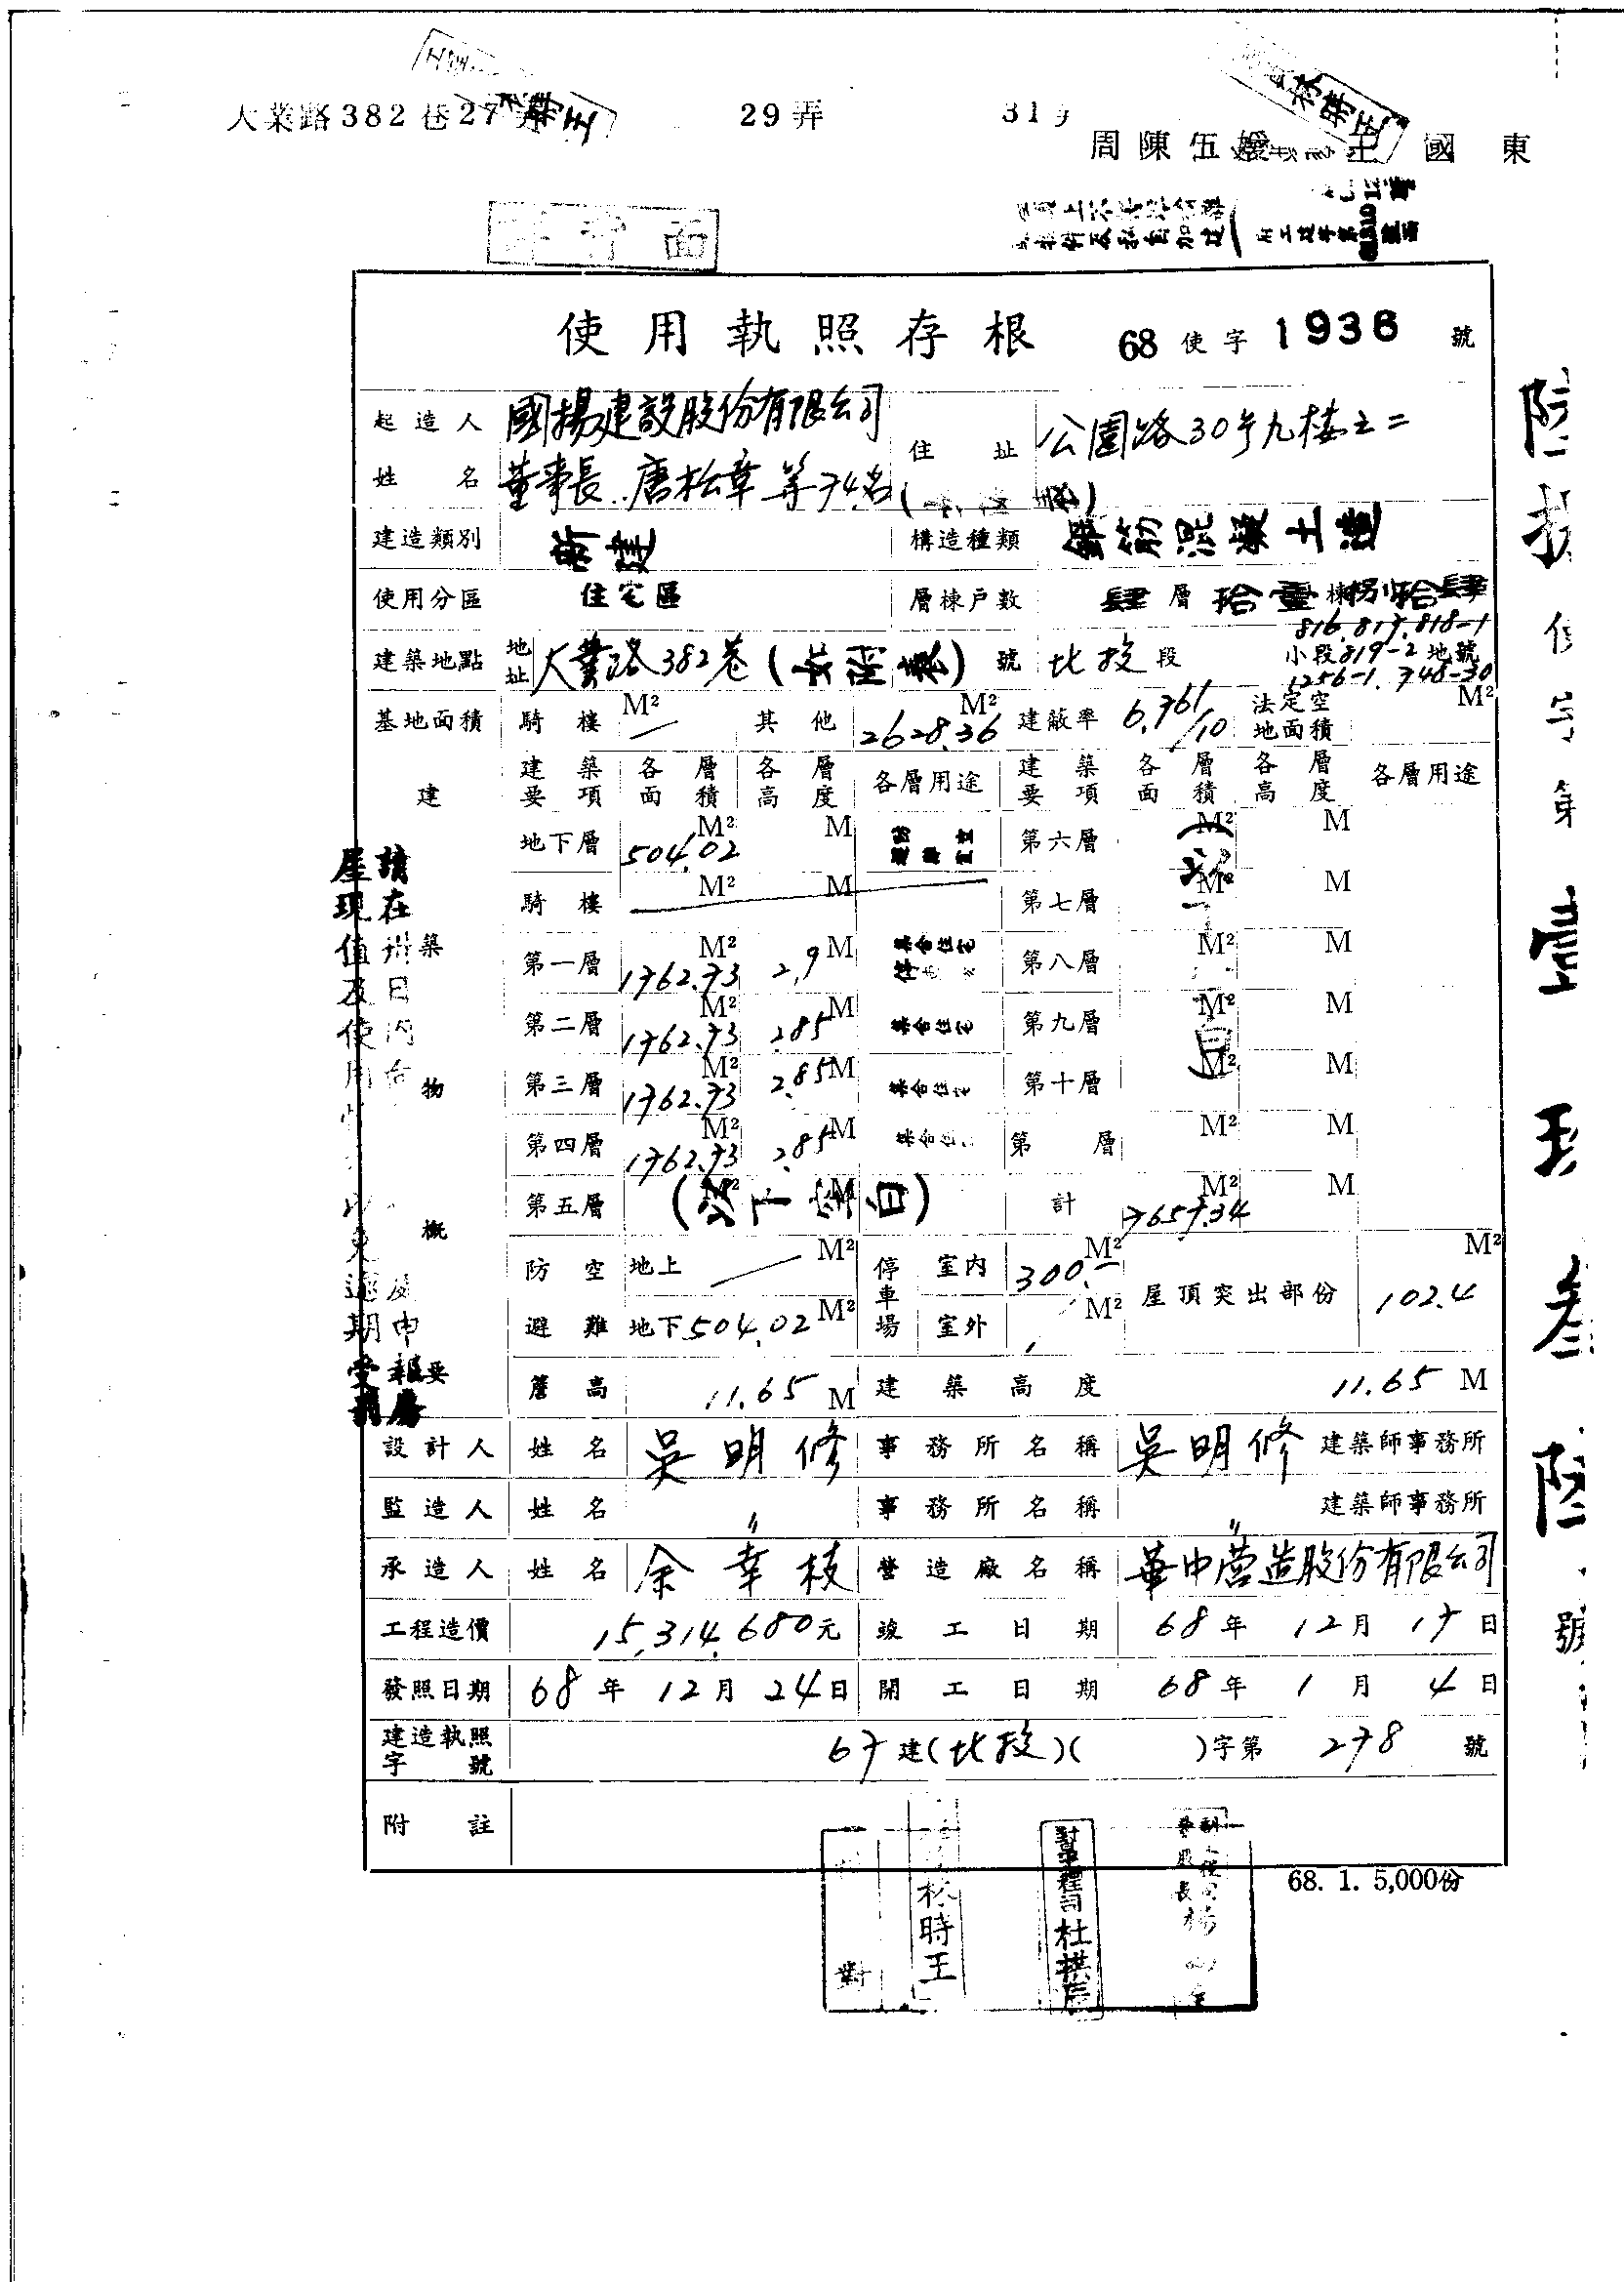 大業路382巷27弄 29弄 31弄
周陳伍媛 王國東
詳背面
使用執照存根 68使字1936號
起造人姓名 國揚建設股份有限公司 董事長 唐松章 等74名
住址 公園路30号九楼之二
建造類別 新建 構造種類 鋼筋混凝土造
使用分區 住宅區 層棟戶數 肆層拾壹棟捌拾肆
建築地點 地址 大業路382巷(詳背面)號 北投段 小段 816.817.818-1 819-2 1256-1.748-30 地號
基地面積 騎樓 M² 其他 2628.36 M² 建蔽率 6.761/10 法定空地面積 M²
建築物概要
建築要項 各層面積 各層高度 各層用途 建築要項 各層面積 各層高度 各層用途
地下層 504.02 M² M 第六層 M² M
騎樓 M² M 第七層 M² M
第一層 1762.73 M² 2.9 M 集合住宅 第八層 M² M
第二層 1762.73 M² 2.85 M 集合住宅 第九層 M² M
第三層 1762.73 M² 2.85 M 集合住宅 第十層 M² M
第四層 1762.73 M² 2.85 M 集合住宅 第 層 M² M
第五層 (以下空白) M² M 計 7657.34 M² M
(以下空白)
防空避難 地上 M² 地下 504.02 M² 停車場 室內 300.- M² 室外 M² 屋頂突出部份 102.4 M²
簷高 11.65 M 建築高度 11.65 M
設計人 姓名 吳明修 事務所名稱 吳明修 建築師事務所
監造人 姓名 〃 事務所名稱 〃 建築師事務所
承造人 姓名 余幸枝 營造廠名稱 華中营造股份有限公司
工程造價 15,314,680元 竣工日期 68年12月17日
發照日期 68年12月24日 開工日期 68年1月4日
建造執照字號 67建(北投)( )字第278號
附註
68. 1. 5,000份
林時王
對
工程司杜拱辰
陸捌使字第壹玖叁陸號